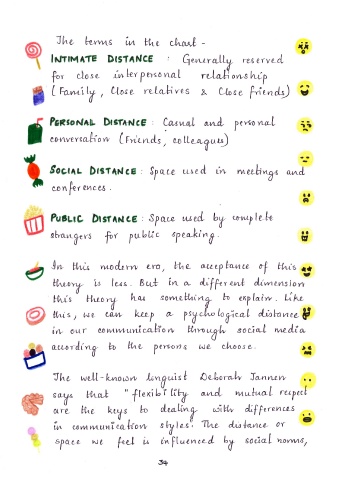 The terms in the chart -
INTIMATE DISTANCE : Generally reserved
for close interpersonal relationship
(Family, Close relatives & Close friends)
PERSONAL DISTANCE: Casual and personal
conversation (Friends, colleagues)
SOCIAL DISTANCE: Space used in meetings and
conferences.
PUBLIC DISTANCE: Space used by complete
strangers for public speaking.
In this modern era, the acceptance of this
theory is less. But in a different dimension
this theory has something to explain. Like
this, we can keep a psychological distance
in our communication through social media
according to the persons we choose.
The well-known linguist Deborah Tannen
says that "flexibility and mutual respect
are the keys to dealing with differences
in communication styles. The distance or
space we feel is influenced by social norms,
34